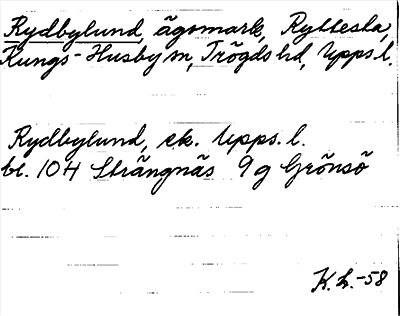 Rydbylund, ägomark, Ryttesta,
Kungs-Husby sn, Trögds hd, Upps. l.
Rydbylund, ek. Upps. l.
bl. 104 Strängnäs 9g Grönsö
K.L.-58